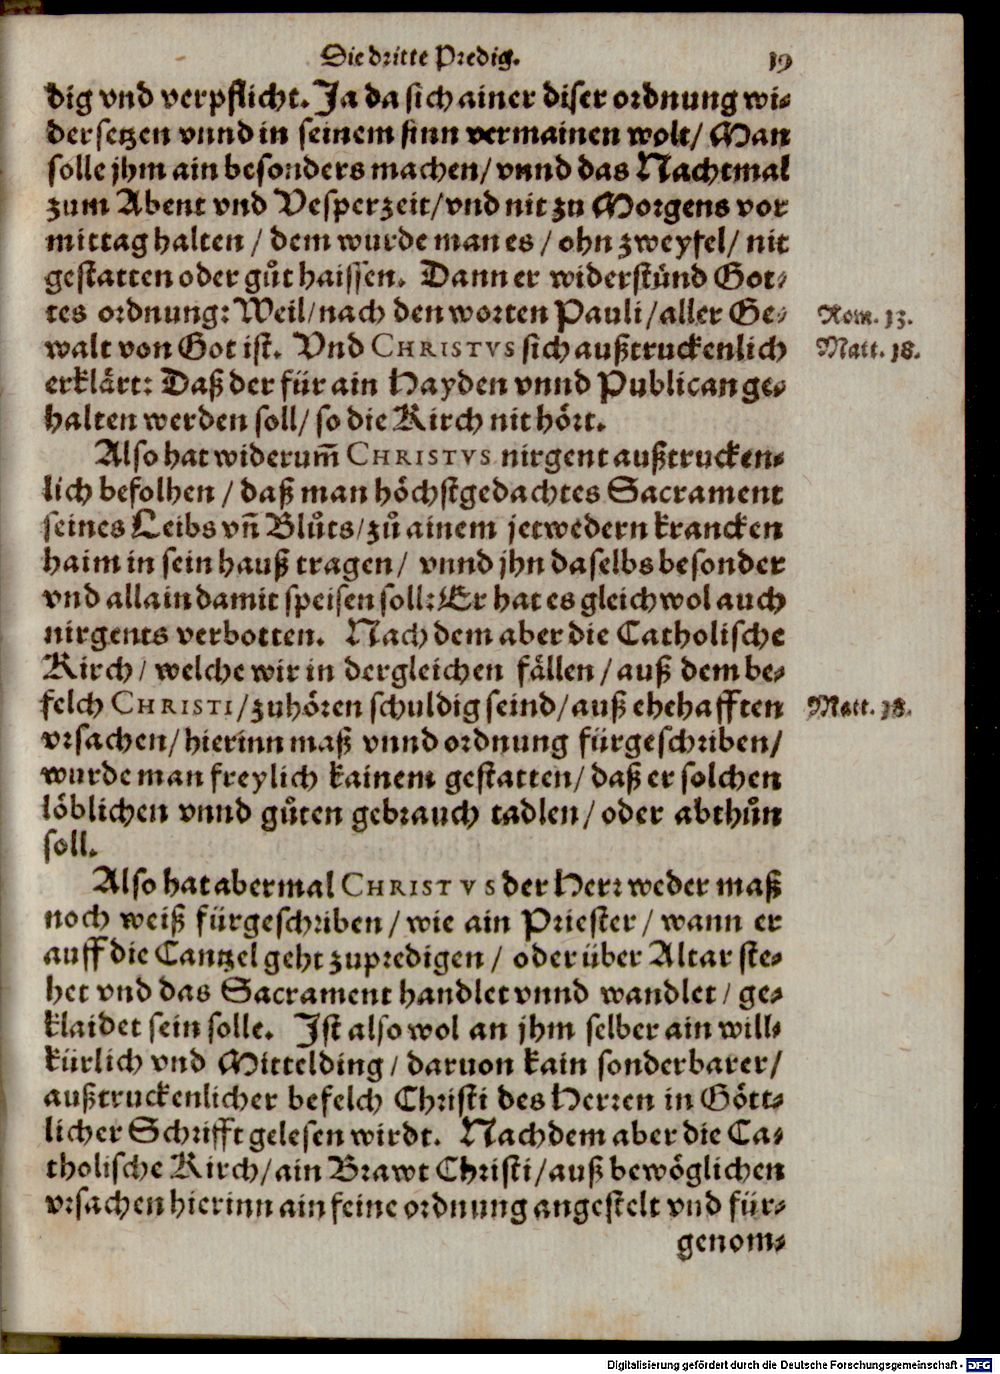 Die dritte Predig. 19
dig vnd verpflicht. Ja da sich ainer diser ordnung wi⸗
dersetzen vnnd in seinem sinn vermainen wolt/ Man
solle jhm ain besonders machen/ vnnd das Nachtmal
zum Abent vnd Vesperzeit/ vnd nit zu Morgens vor
mittag halten / dem wurde man es / ohn zweyfel/ nit
gestatten oder gůt haissen. Dann er widerstůnd Got⸗
tes ordnung: Weil/ nach den worten Pauli/ aller Ge⸗ Rom. 13.
walt von Got ist. Vnd CHRISTVS sich außtruckenlich Matt. 18.
erklärt: Daß der für ain Hayden vnnd Publican ge⸗
halten werden soll/ so die Kirch nit hört.
Also hat widerum̃ CHRISTVS nirgent außtrucken⸗
lich befolhen / daß man höchstgedachtes Sacrament
seines Leibs vñ Blůts/ zů ainem jetwedern krancken
haim in sein hauß tragen/ vnnd jhn daselbs besonder
vnd allain damit speisen soll: Er hat es gleichwol auch
nirgents verbotten. Nach dem aber die Catholische
Kirch/ welche wir in dergleichen fällen/ auß dem be⸗
felch CHRISTI/ zuhören schuldig seind/ auß ehehafften Matt. 18.
vrsachen/ hierinn maß vnnd ordnung fürgeschriben/
wurde man freylich kainem gestatten/ daß er solchen
löblichen vnnd gůten gebrauch tadlen/ oder abthůn
soll.
Also hat abermal CHRISTVS der Herr weder maß
noch weiß fürgeschriben/ wie ain Priester/ wann er
auff die Cantzel geht zupredigen / oder über Altar ste⸗
het vnd das Sacrament handlet vnnd wandlet/ ge⸗
klaidet sein solle. Ist also wol an jhm selber ain will⸗
kürlich vnd Mittelding/ daruon kain sonderbarer/
außtruckenlicher befelch Christi des Herren in Gött⸗
licher Schrifft gelesen wirdt. Nachdem aber die Ca⸗
tholische Kirch/ ain Brawt Christi/ auß bewöglichen
vrsachen hierinn ain feine ordnung angestelt vnd für⸗
genom⸗
Digitalisierung gefördert durch die Deutsche Forschungsgemeinschaft - DFG